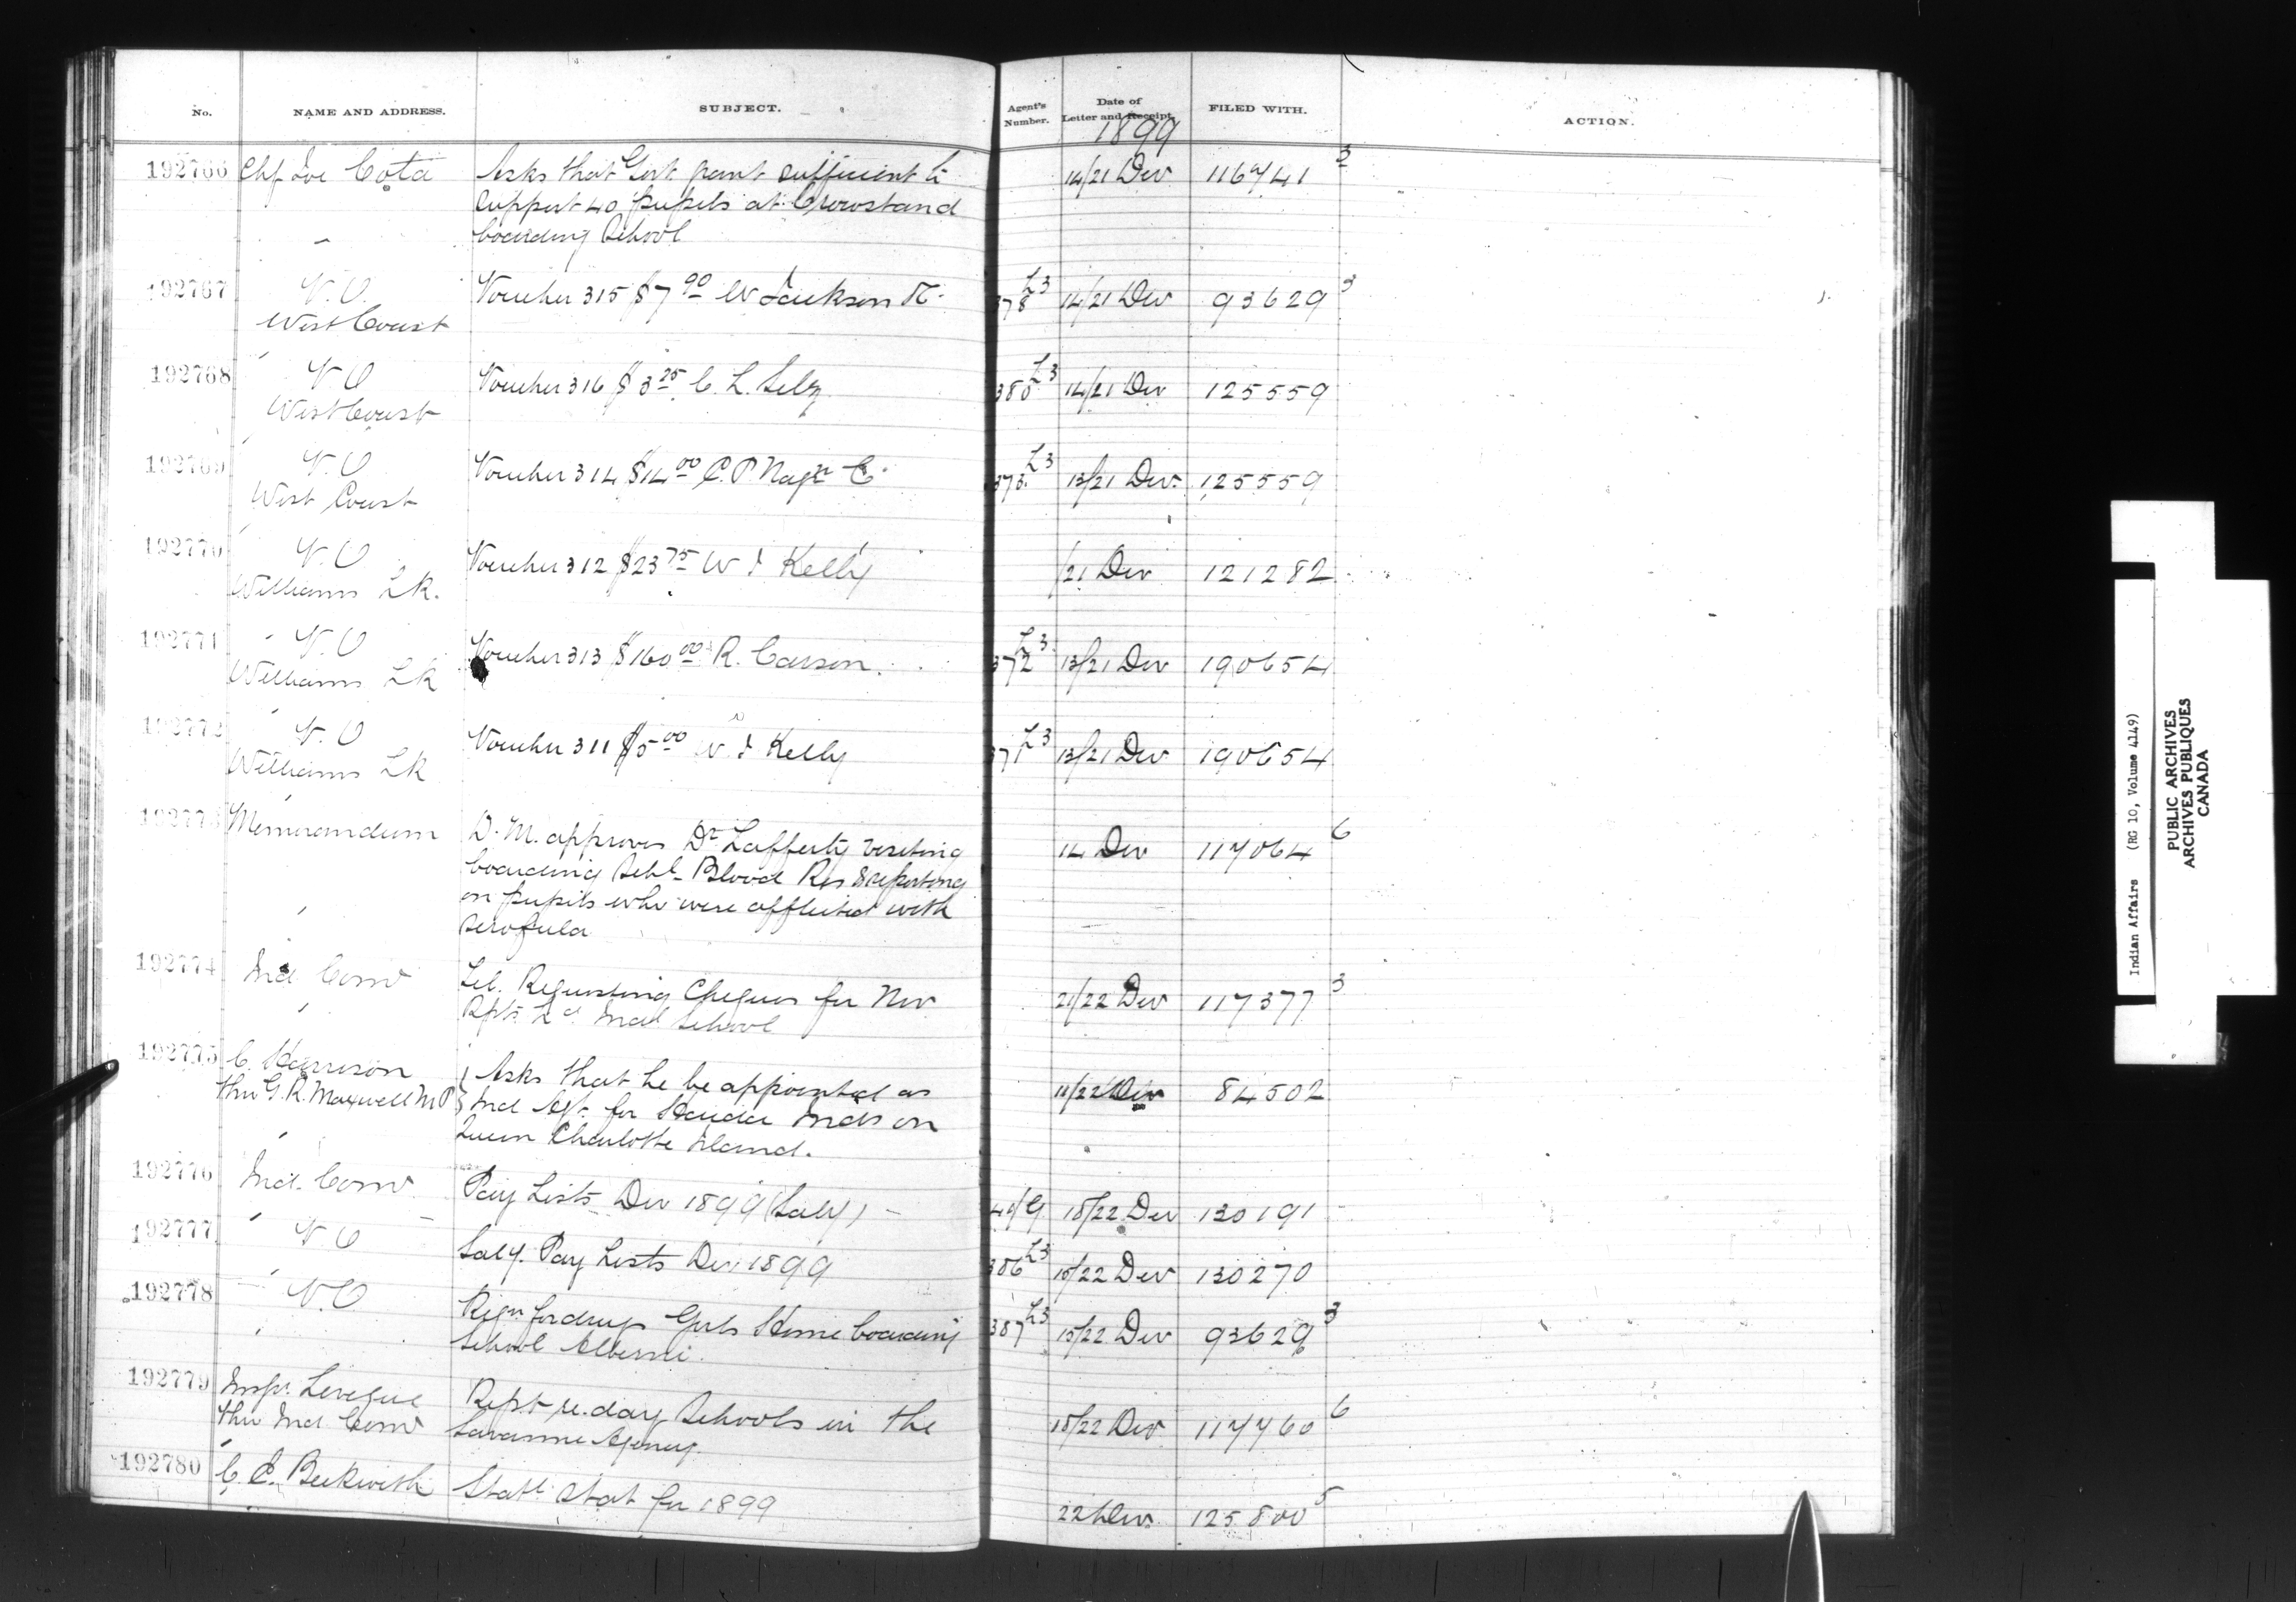 No. NAME AND ADDRESS. SUBJECT. Agent's Number. Date of Letter and Receipt. FILED WITH. ACTION.
1899
192766 Chf Joe Cota Asks that Govt grant sufficient to 14/21 Dec 116741 3
support 40 pupils at Crowstand
boarding School
192767 V.O. Voucher 315 $7 90 W Jackson 378 L3 14/21 Dec 93629 3
West Coast
192768 V O Voucher 316 $3 25 C. L. 380 L3 14/21 Dec 125559
West Coast
192769 V.O Voucher 314 $14 00 C.P. Nagn Co 373 L3 13/21 Dec. 125559
West Coast
192770 V.O Voucher 312 $23 75 W J Kelly /21 Dec 121282
Williams Lk.
192771 V.O Voucher 313 $160 00 R. Carson. 372 L3 13/21 Dec 190654
Williams Lk
192772 V.O Voucher 311 $5 00 W. J Kelly 371 L3 13/21 Dec 190654
Williams Lk
192773 Memorandum D.M. approves Dr Lafferty visiting 14 Dec 117064 6
boarding Schl Blood Res & reporting
on pupils who were afflicted with
scrofula
192774 Ind Comr Tel. Requesting Cheques for Nov 21/22 Dec 117377 3
Rpts Indl School
192775 C. Harrison
thro G.R. Maxwell M P } Asks that he be appointed as 11/22 Dec 84502
Ind Agt. for Haida Inds on
Queen Charlotte Island.
192776 Ind. Comr Pay Lists Dec 1899 (Saly) 40/G 18/22 Dec 130191
192777 V.O Saly. Pay Lists Dec 1899 386 L3 15/22 Dec 130270
192778 V.O Reqn for drugs Girls Home boarding 387 L3 15/22 Dec 93629 3
School Alberni.
192779 Inspr. Leveque Rept re. day Schools in the 18/22 Dec 117760 6
thro Ind Comr Savanne Agency.
192780 C. E. Beckwith Statl Stat for 1899 22 Dec. 125800 5
Indian Affairs (RG 10, Volume 4149)
PUBLIC ARCHIVES
ARCHIVES PUBLIQUES
CANADA